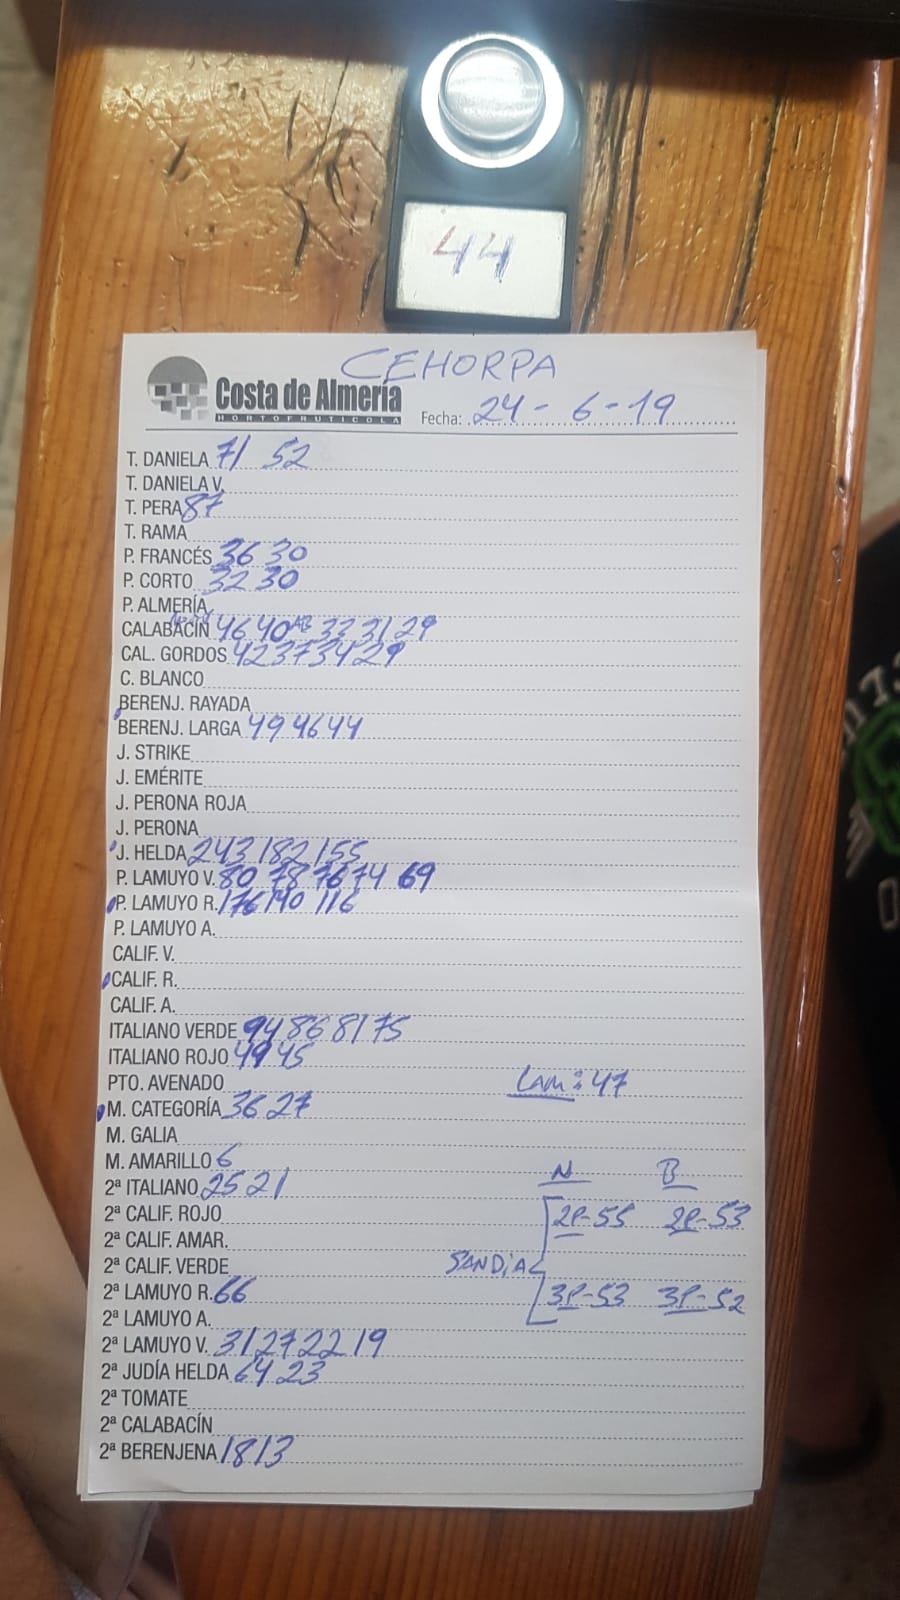 44
CEHORPA
Costa de Almería
HORTOFRUTÍCOLA
Fecha: 24 - 6 - 19
T. DANIELA 71 52
T. DANIELA V.
T. PERA 87
T. RAMA
P. FRANCÉS 36 30
P. CORTO 32 30
P. ALMERÍA
CALABACÍN 46 40 33 31 29
CAL. GORDOS 42 37 34 29
C. BLANCO
BERENJ. RAYADA
BERENJ. LARGA 49 46 44
J. STRIKE
J. EMÉRITE
J. PERONA ROJA
J. PERONA
J. HELDA 243 182 155
P. LAMUYO V. 80 78 76 74 69
P. LAMUYO R. 176 140 116
P. LAMUYO A.
CALIF. V.
CALIF. R.
CALIF. A.
ITALIANO VERDE 94 86 81 75
ITALIANO ROJO 49 45
PTO. AVENADO Lam: 47
M. CATEGORÍA 36 27
M. GALIA
M. AMARILLO 6 N B
2ª ITALIANO 25 21
2ª CALIF. ROJO 2P-55 2P-53
2ª CALIF. AMAR.
2ª CALIF. VERDE SANDIA
2ª LAMUYO R. 66 3P-53 3P-52
2ª LAMUYO A.
2ª LAMUYO V. 31 27 22 19
2ª JUDÍA HELDA 64 23
2ª TOMATE
2ª CALABACÍN
2ª BERENJENA 18 13